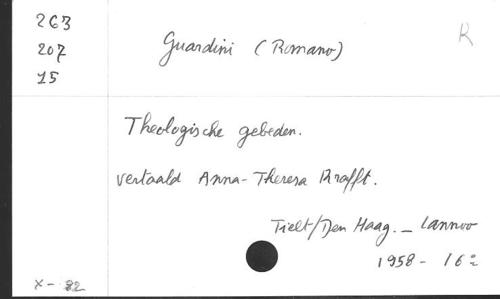 263
207
15
Guardini (Romano)
R
Theologische gebeden.
vertaald Anna-Theresa Krafft.
Tielt/Den Haag. _ Lannoo
1958 - 16°
X - 82